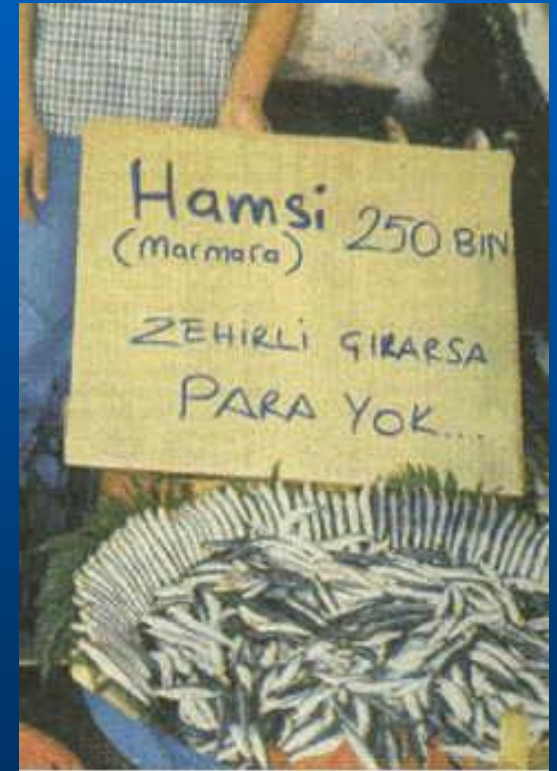 Hamsi 250 BIN
(Marmara)
ZEHİRLİ ÇIRARSA
PARA YOK....